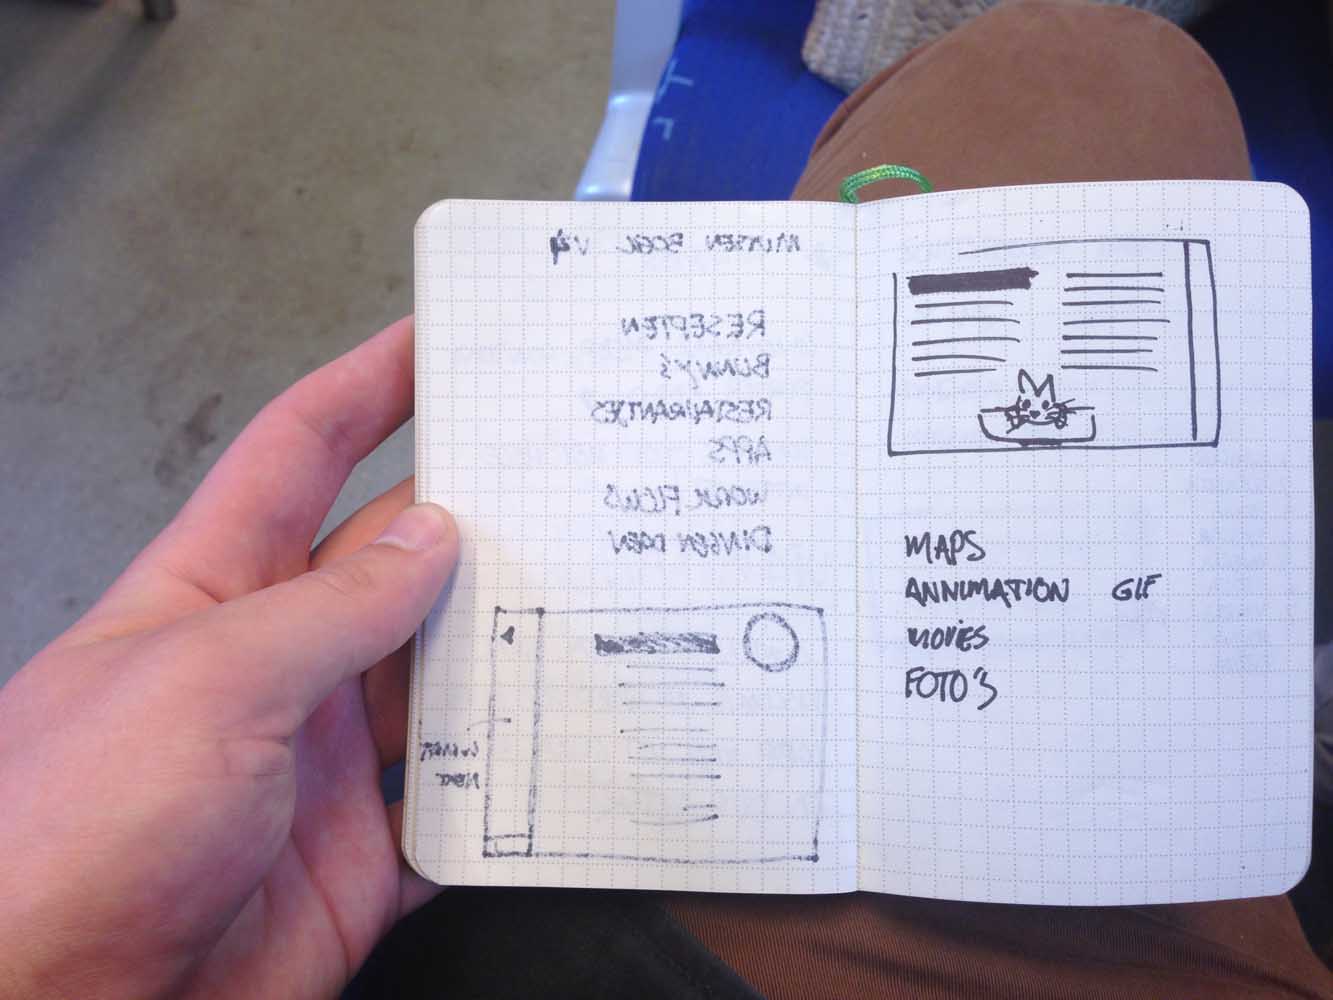 MARTEN BOEK V4
RESEPTEN
BUNNY'S
RESTAURANTJES
APPS
WORK FLOWS
DINGEN DOEN
WHAT
NEXT
MAPS
ANNIMATION GIF
MOVIES
FOTO'S